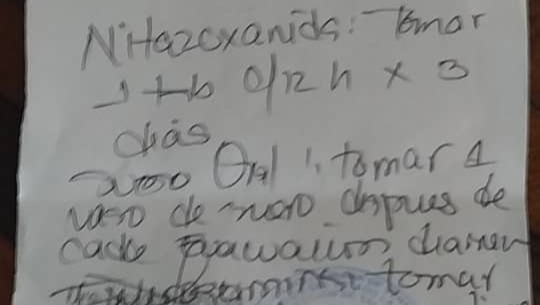 Nitazoxanida: Tomar
1 tb c/12 h x 3
días
suero Oral: tomar 1
vaso de suero despues de
cada
tomar